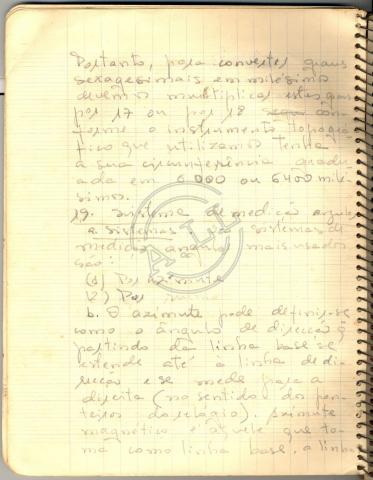 Portanto, para converter graus
sexagesimais em milésimos
devemos multiplicar estes graus
por 17 ou por 18 con-
forme o instrumento topográ-
fico que utilizamos tenha
a sua circunferência gradu-
ada em 6000 ou 6400 milé-
simos.
19. Sistema de medição angular
a sistemas os sistemas de
medição angular mais usados
são:
(1) Por azimute
(2) Por
b. O azimute pode definir-se
como o ângulo de direcção q
partindo da linha base se
estende até à linha de di-
recção e se mede para a
direita (no sentido dos pon-
teiros do relógio). Azimute
magnético é aquele que to-
ma como linha base, a linha